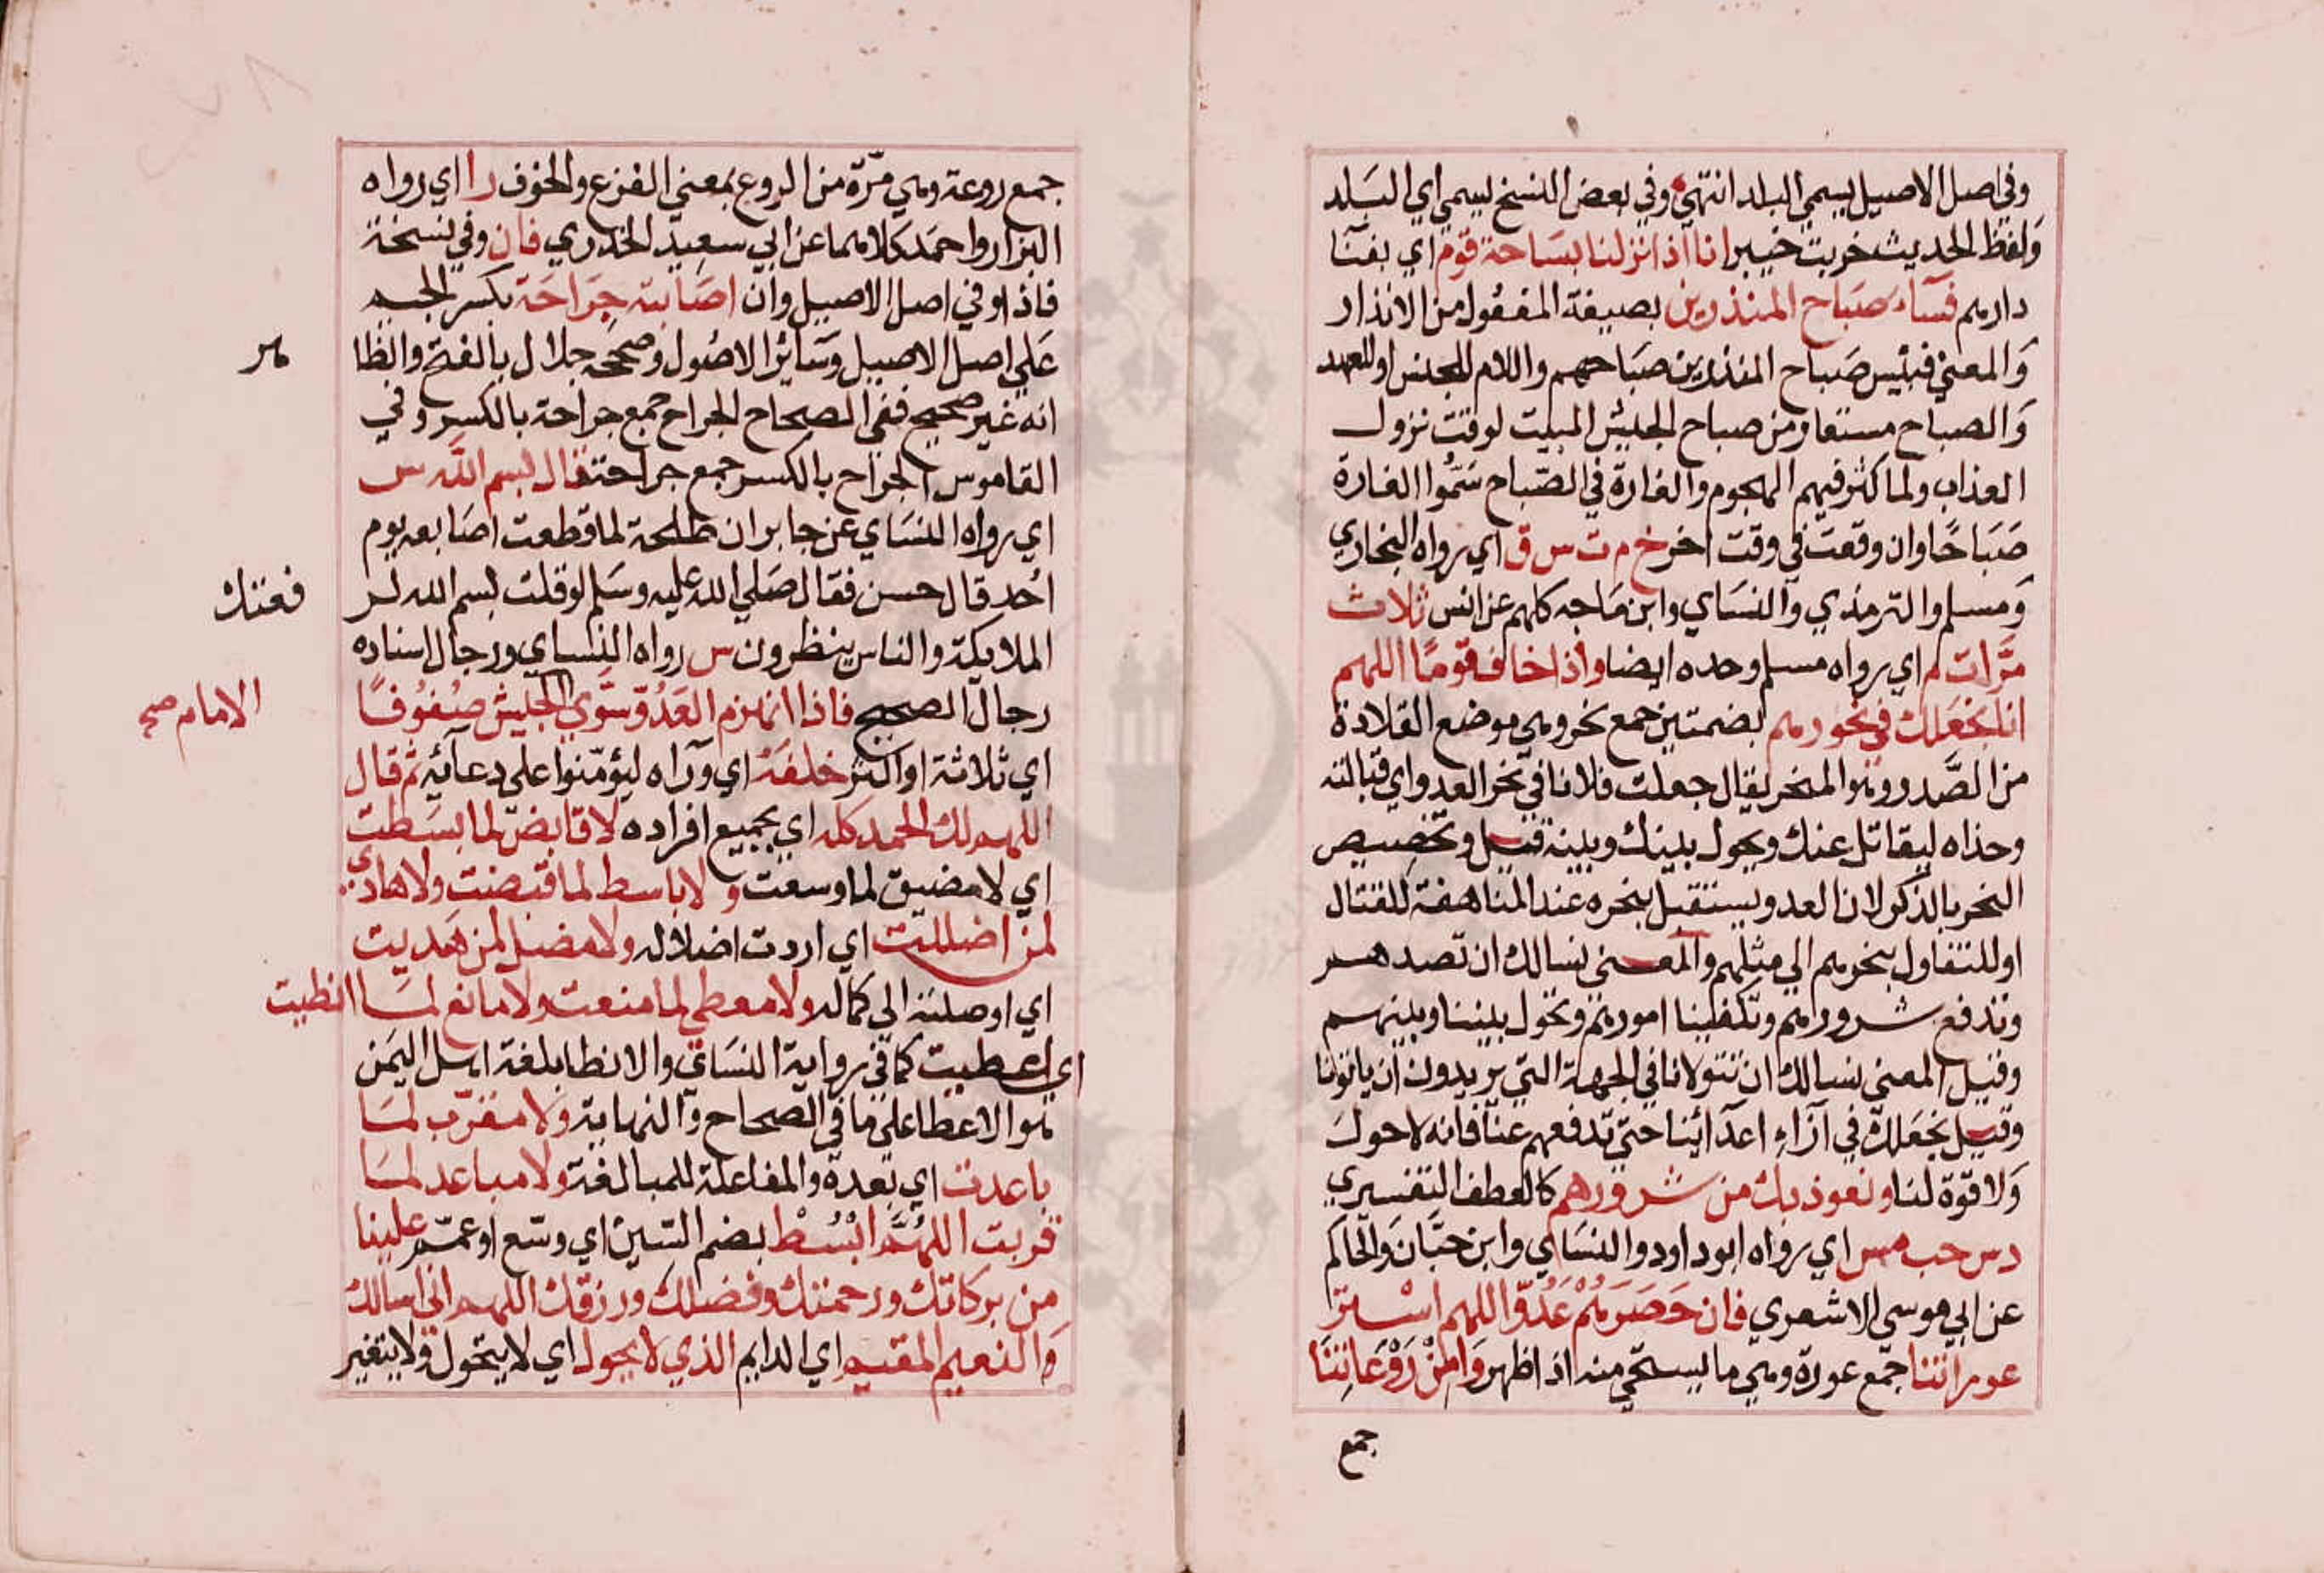 وفي اصل الاصيل يسمي البلد انتهي وفي بعض النسخ ليسمي اي البلد
ولفظ الحديث خربت خيبر انا اذا نزلنا بساحة قوم اي بفنا
دارهم فسآء صباح المنذرين بصيغة المفعول من الانذار
والمعني فبئس صباح المنذرين صباحهم واللام للجنس او للعهد
والصباح مستعار من صباح الجيش المبيت لوقت نزول
العذاب ولما كثر فيهم الهجوم والغارة في الصباح سموا الغارة
صباحا وان وقعت في وقت اخر خ م ت س ق اي رواه البخاري
ومسلم والترمذي والنساي وابن ماجه كلهم عن انس ثلاث
مرات م اي رواه مسلم وحده ايضا واذا خاف قوما اللهم
انا نجعلك في نحورهم بضمتين جمع نحر وهي موضع القلادة
من الصدر وهو المنحر يقال جعلت فلانا في نحر العدو اي قبالته
وحذاه ليقاتل عنك ويحول بينك وبينه قيل وتخصيص
النحر بالذكر لان العدو يستقبل بنحره عند المناهضة للقتال
او للتفاول بنحرهم الي مثلهم والمعني نسالك ان تصدهم
وتدفع شرورهم وتكفينا امورهم وتحول بيننا وبينهم
وقيل المعني نسالك ان تتولانا في الجهة التي يريدون ان ياتونا
وقيل نجعلك في ازآء اعدآئنا حتي تدفعهم عنا فانه لا حول
ولا قوة لنا ونعوذ بك من شرورهم كالعطف التفسيري
د س حب مس اي رواه ابو داود والنساي وابن حبان والحاكم
عن ابي موسي الاشعري فان حصرهم عدو اللهم استر
عوراتنا جمع عورة وهي ما يستحي منه اذا ظهر وامن روعاتنا
جمع
جمع روعة وهي مرة من الروع بمعني الفزع والخوف را اي رواه
البزار واحمد كلاهما عن ابي سعيد الخدري فان وفي نسخة
فاذا وفي اصل الاصيل وان اصابته جراحة بكسر الجيم
علي اصل الاصيل وسائر الاصول وصححه جلال بالفتح والظا
هر
انه غير صحيح ففي الصحاح الجراح جمع جراحة بالكسر وفي
القاموس الجراح بالكسر جمع جراحة قال بسم الله س
اي رواه النساي عن جابر ان طلحة لما قطعت اصابعه يوم
احد قال حسن فقال صلي الله عليه وسلم لو قلت بسم الله لر
فعتك
الملايكة والناس ينظرون س رواه النساي ورجال اسناده
رجال الصحيح فاذا انهزم العدو سوي الجيش صفوفا
الامام صح
اي ثلاثة او اكثر خلفه اي ورآه ليؤمنوا علي دعآئه ثم قال
اللهم لك الحمد كله اي بجميع افراده لا قابض لما بسطت
اي لا مضيق لما وسعت و لا باسط لما قبضت ولا هادي
لمن اضللت اي اردت اضلاله ولا مضل لمن هديت
اي اوصلته الي كماله ولا معطي لما منعت ولا مانع لما انطيت
اي اعطيت كما في رواية النساي والانطا بلغة اهل اليمن
هو الاعطا علي ما في الصحاح والنهاية ولا مقرب لما
باعدت اي بعدة والمفاعلة للمبالغة ولا مباعد لما
قربت اللهم ابسط بضم السين اي وسع او عمم علينا
من بركاتك ورحمتك وفضلك ورزقك اللهم اني اسالك
والنعيم المقيم اي الدايم الذي لا يحول اي لا يتحول ولا يتغير